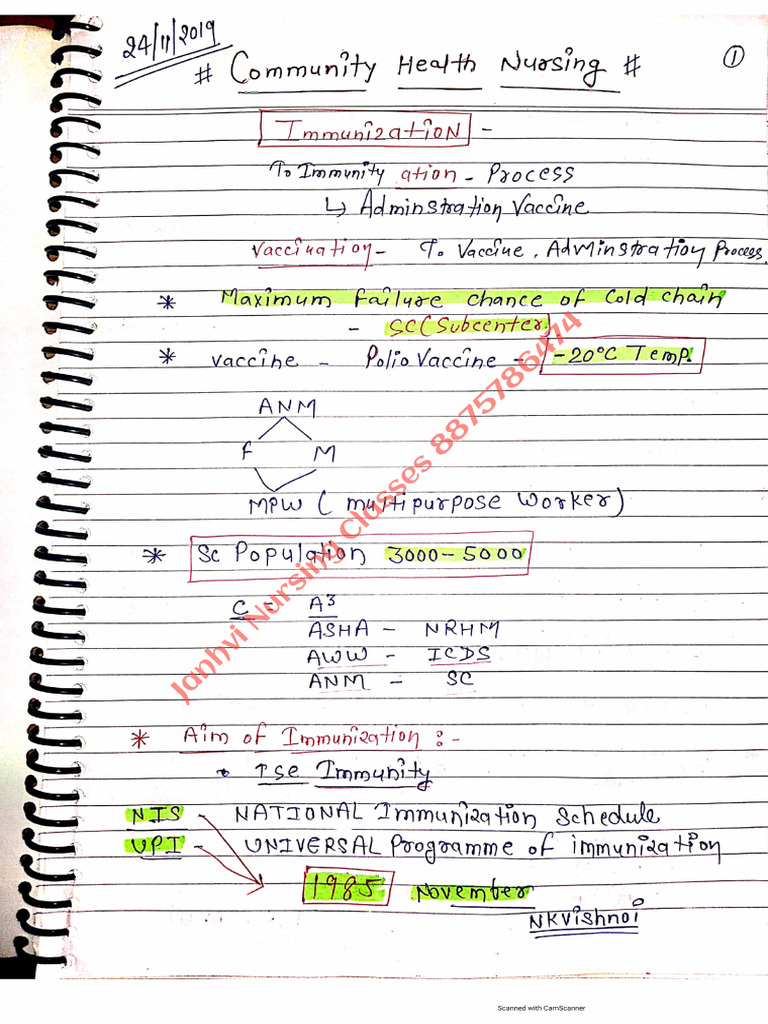 24/11/2019
# Community Health Nursing #
1
ImmunizatioN -
To Immunity ation - Process
↳ Adminstration Vaccine
Vaccination - To Vaccine, Adminstration Process.
* Maximum failure chance of cold chain
- SC (Subcenter)
* vaccine - Polio Vaccine - -20°C Temp.
ANM
F M
MPW ( multipurpose worker)
* Sc Population 3000-5000
C = A³
ASHA - NRHM
AWW - ICDS
ANM - SC
* Aim of Immunization :-
• ↑se Immunity
NIS - NATIONAL Immunization Schedule
UPI - UNIVERSAL Programme of immunization
1985 November
NKVishnoi
Janhvi Nursing Classes 8875786474
Scanned with CamScanner